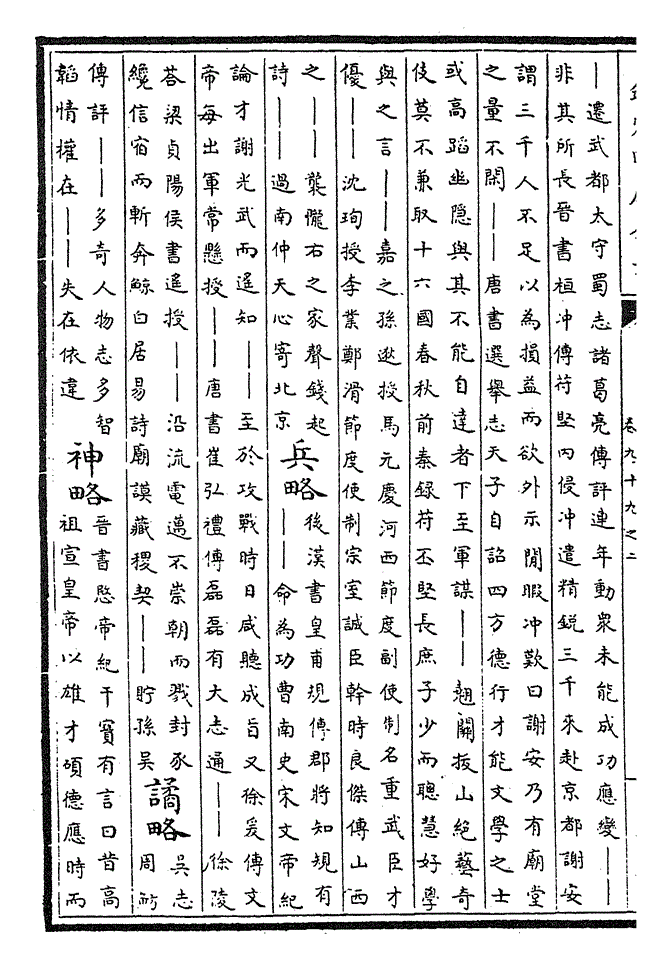 卷九十九之二
｜遷武都太守蜀志諸葛亮傳評連年動衆未能成功應變｜｜
非其所長晉書桓沖傳苻堅内侵沖遣精鋭三千來赴京都謝安
謂三千人不足以為損益而欲外示閒暇沖歎曰謝安乃有廟堂
之量不閑｜｜唐書選舉志天子自詔四方德行才能文學之士
或高蹈幽隐與其不能自達者下至軍謀｜｜翹關拔山絶藝奇
伎莫不兼取十六國春秋前秦録苻丕堅長庶子少而聰慧好學
與之言｜｜嘉之孫逖授馬元慶河西節度副使制名重武臣才
優｜｜沈珣授李業鄭滑節度使制宗室誠臣幹時良傑傳山西
之｜｜襲隴右之家聲錢起
詩｜｜過南仲天心寄北京
兵略
後漢書皇甫規傳郡將知規有
｜｜命為功曹南史宋文帝紀
論才謝光武而遥知｜｜至於攻戰時日咸聽成旨又徐爰傳文
帝每出軍常懸授｜｜唐書崔弘禮傳磊磊有大志通｜｜徐陵
荅梁貞陽侯書遥授｜｜沿流電邁不崇朝而戮封豕
纜信宿而斬奔鯨白居易詩廟謨藏稷契｜｜貯孫吳
譎略
吳志
周魴
傳評｜｜多奇人物志多智
韜情權在｜｜失在依違
神略
晉書愍帝紀干寶有言曰昔高
祖宣皇帝以雄才碩德應時而